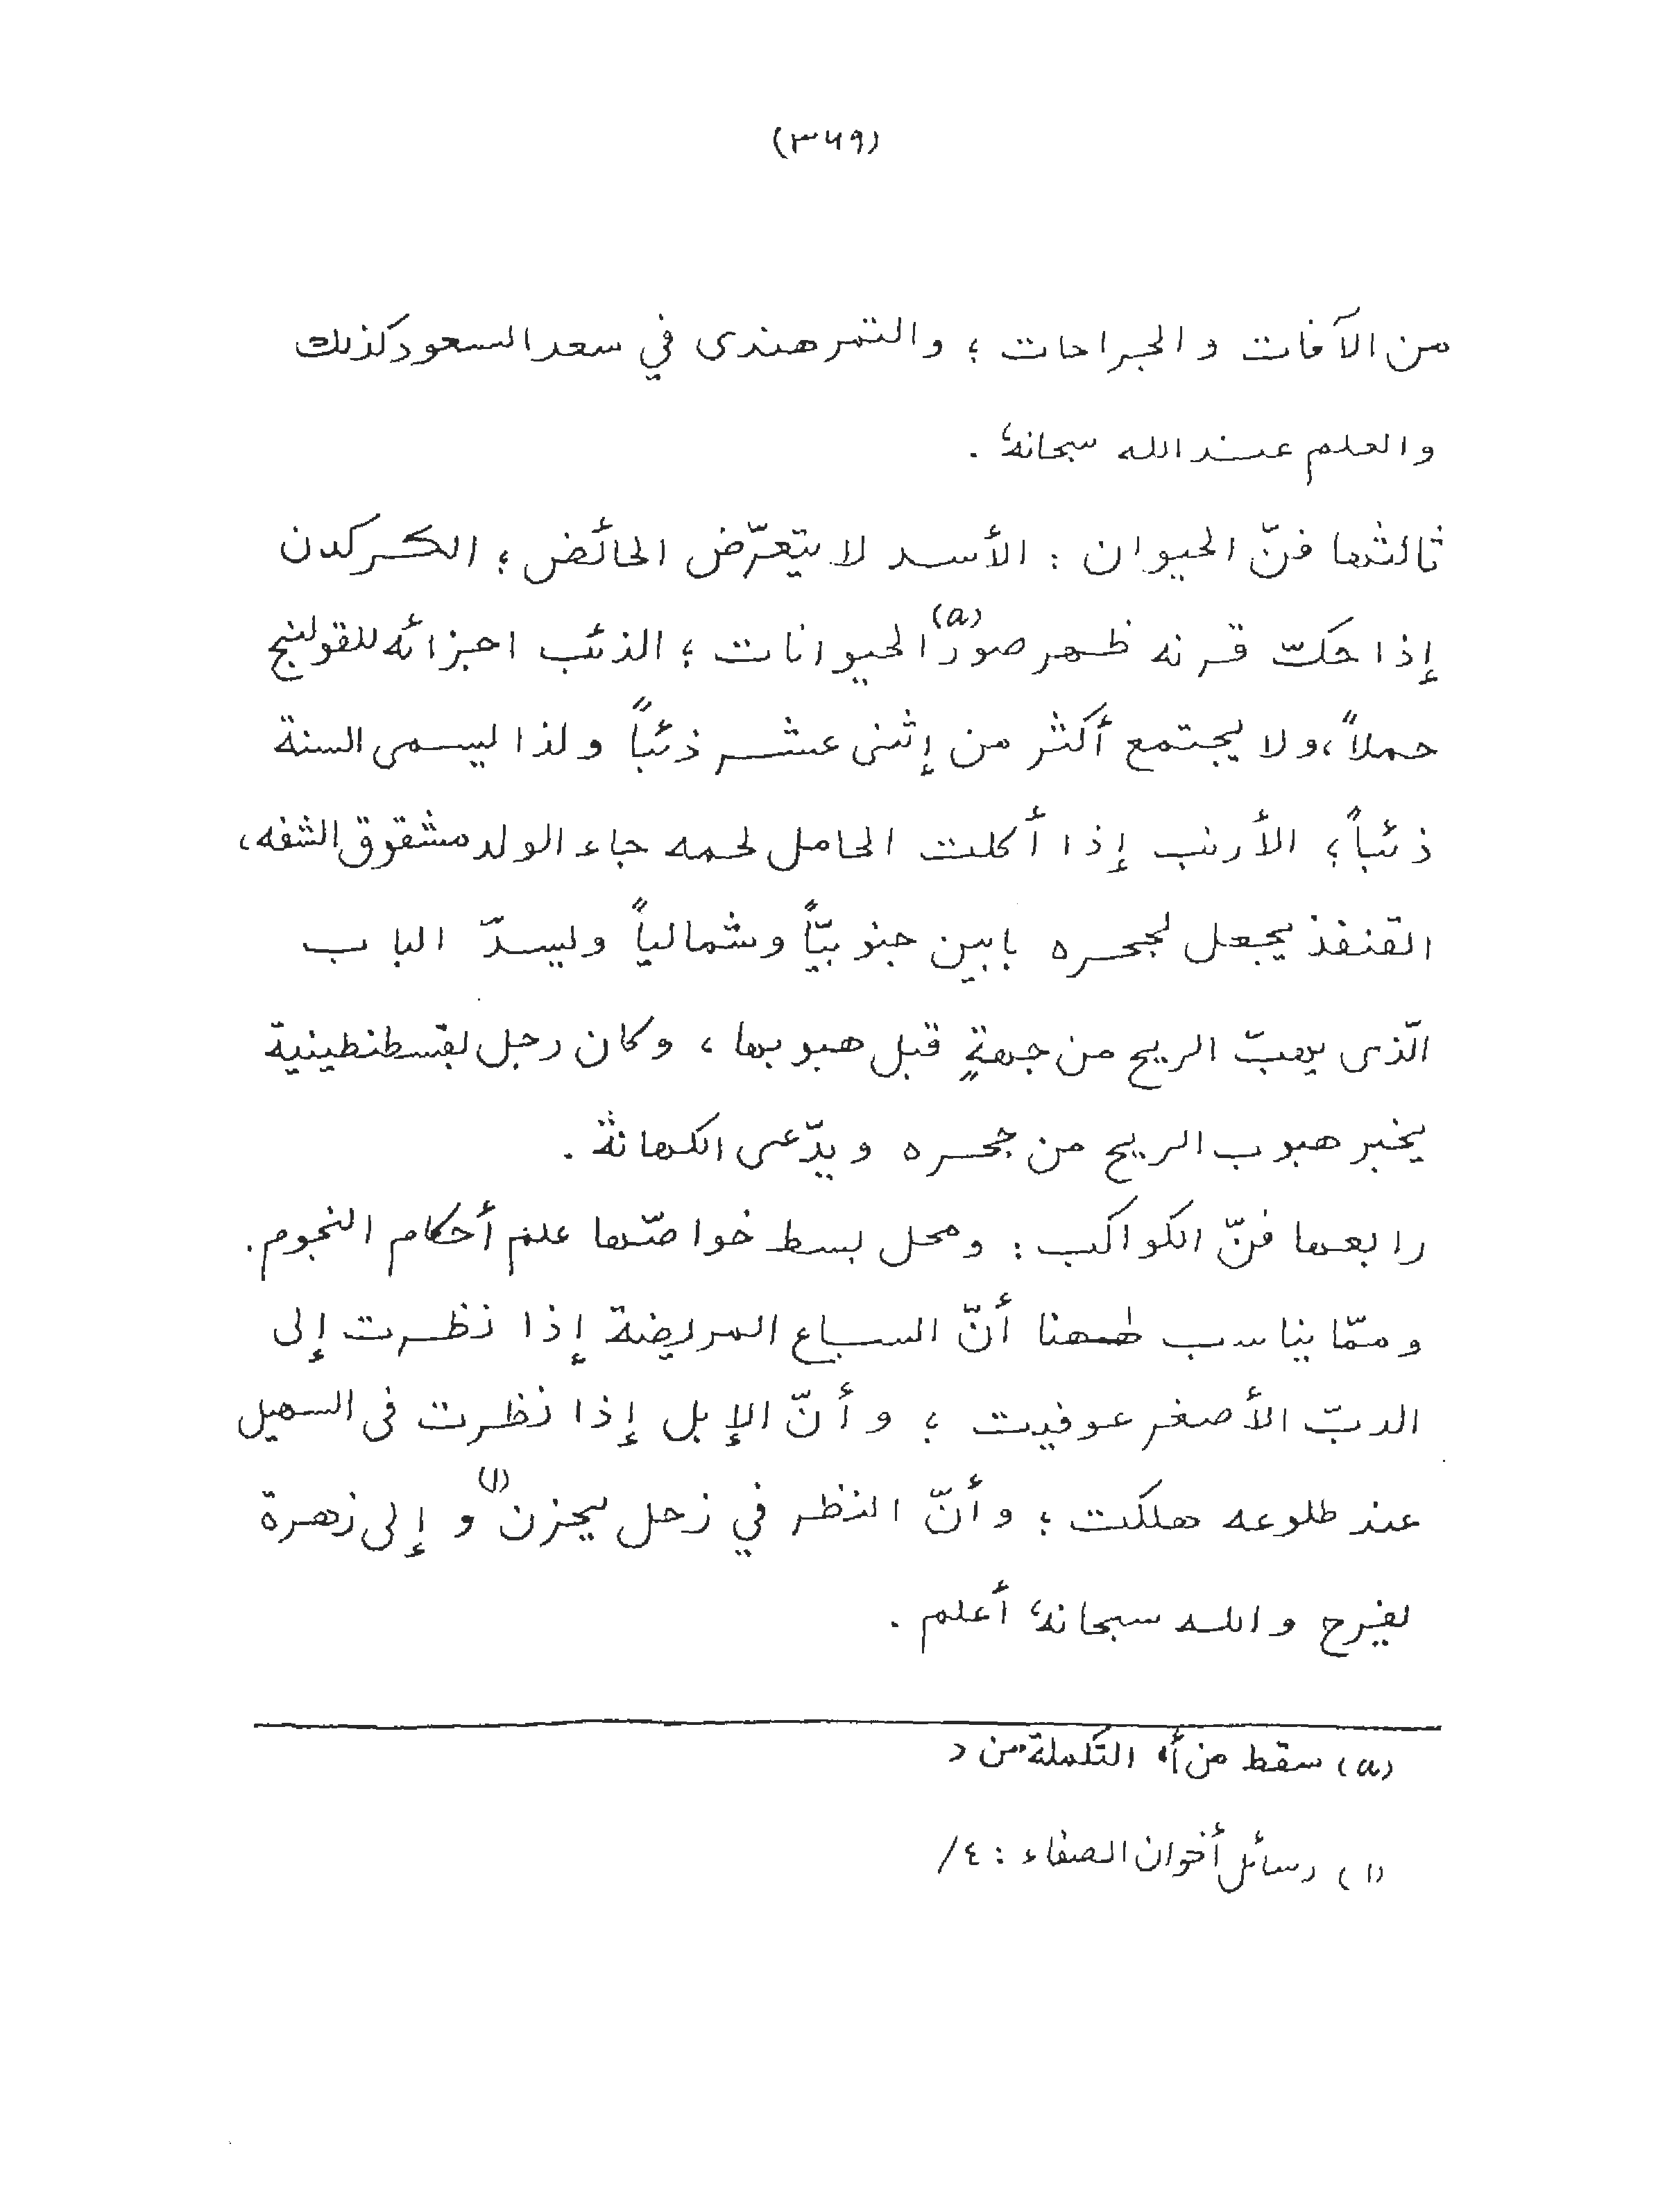 (٣٦٩)
من الآفات و الجراحات ؛ والتمر هندى في سعد السعود كذلك
والعلم عند الله سبحانهٗ .
ثالثها فنّ الحيوان : الأسد لا يتعرّض الحائض ؛ الكركدن
إذا حكّ قرنه ظهر صور(a) الحيوانات ؛ الذئب اجزائه للقولنج
حملاً، ولا يجتمع أكثر من إثنى عشر ذئباً ولذا يسمى السنة
ذئباً؛ الأرنب إذا أكلت الحامل لحمه جاء الولد مشقوق الشفه،
القنفذ يجعل لجحره بابين جنوبيّاً وشمالياً ويسدّ الباب
الّذى يهبّ الريح من جهةٍ قبل هبوبها ، وكان رجل بقسطنطينية
يخبر هبوب الريح من جحره ويدّعى الكهانة .
رابعها فنّ الكواكب : ومحل بسط خواصّها علم أحكام النجوم .
وممّا يناسب ههنا أنّ السباع المريضة إذا نظرت إلى
الدبّ الأصغر عوفيت ؛ وأنّ الإبل إذا نظرت فى السهيل
عند طلوعه هلكت ؛ وأنّ النظر في زحل يحزن(١) و إلى زهرة
يفرح والله سبحانهٗ أعلم .
(a) سقط من أ، التكملة من د
(١) رسائل أخوان الصفاء : ٤/